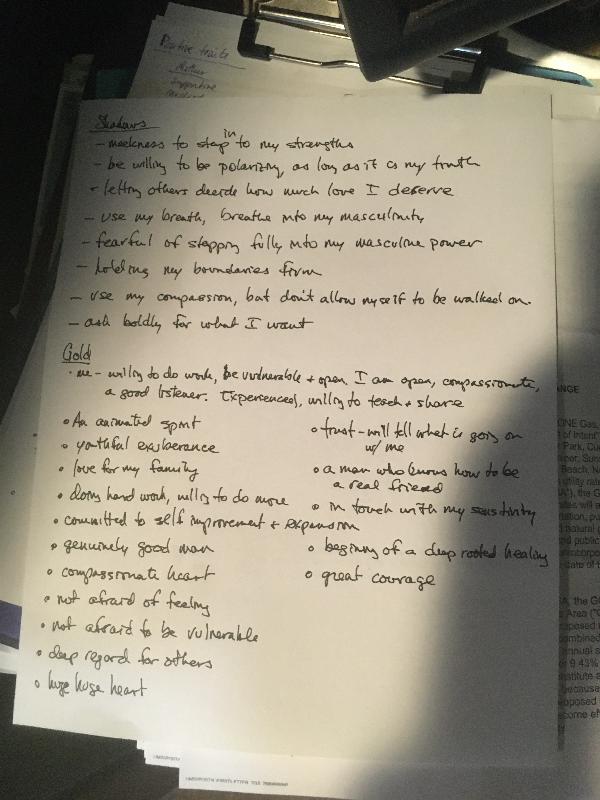 Positive traits
Shadows
- meekness to step into my strengths
- be willing to be polarizing, as long as it is my truth
- letting others decide how much love I deserve
- use my breath, breathe into my masculinity
- fearful of stepping fully into my masculine power
- holding my boundaries firm
- use my compassion, but don't allow myself to be walked on.
- ask boldly for what I want
Gold
• me - willing to do work, be vulnerable + open. I am open, compassionate,
a good listener. Experienced, willing to teach + share
• An animated spirit
• youthful exuberance
• love for my family
• doing hard work, willing to do more
• committed to self improvement + expansion
• genuinely good man
• compassionate heart
• not afraid of feeling
• not afraid to be vulnerable
• deep regard for others
• huge huge heart
• trust - will tell what is going on
w/ me
• a man who knows how to be
a real friend
• in touch with my sensitivity
• beginning of a deep rooted healing
• great courage
ANGE
ONE Gas,
of Intent"
Park, Cu
Beach, N
utility rate
the G
natural g
nd public
ncorpo
state of
SA, the GC
Area ("G
oposed
ombined
annual s
or 9.43%
nstitute a
because
oposed
come ef